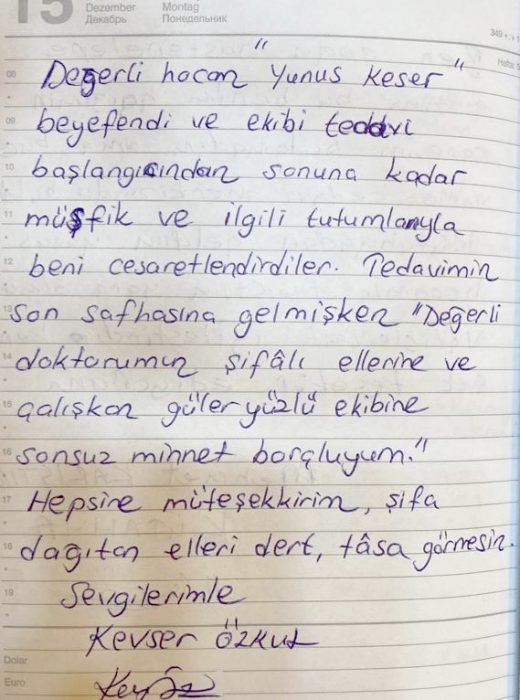 15 Dezember Montag
Декабрь Понедельник
349
08 Değerli hocam "Yunus Keser"
09 beyefendi ve ekibi tedavi
10 başlangıcından sonuna kadar
11 müşfik ve ilgili tutumlarıyla
12 beni cesaretlendirdiler. Tedavimin
13 son safhasına gelmişken "Değerli
14 doktorumun şifâlı ellerine ve
15 çalışkan güler yüzlü ekibine
16 sonsuz minnet borçluyum."
17 Hepsine müteşekkirim, şifa
18 dağıtan elleri dert, tâsa görmesin.
19 Sevgilerimle
Kevser Özkul
Dolar
Euro